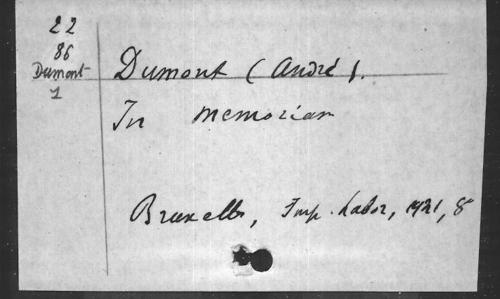 22
86
Dumont
1
Dumont (André).
In memoriam
Bruxelles, Imp. Labor, 1921, 8°